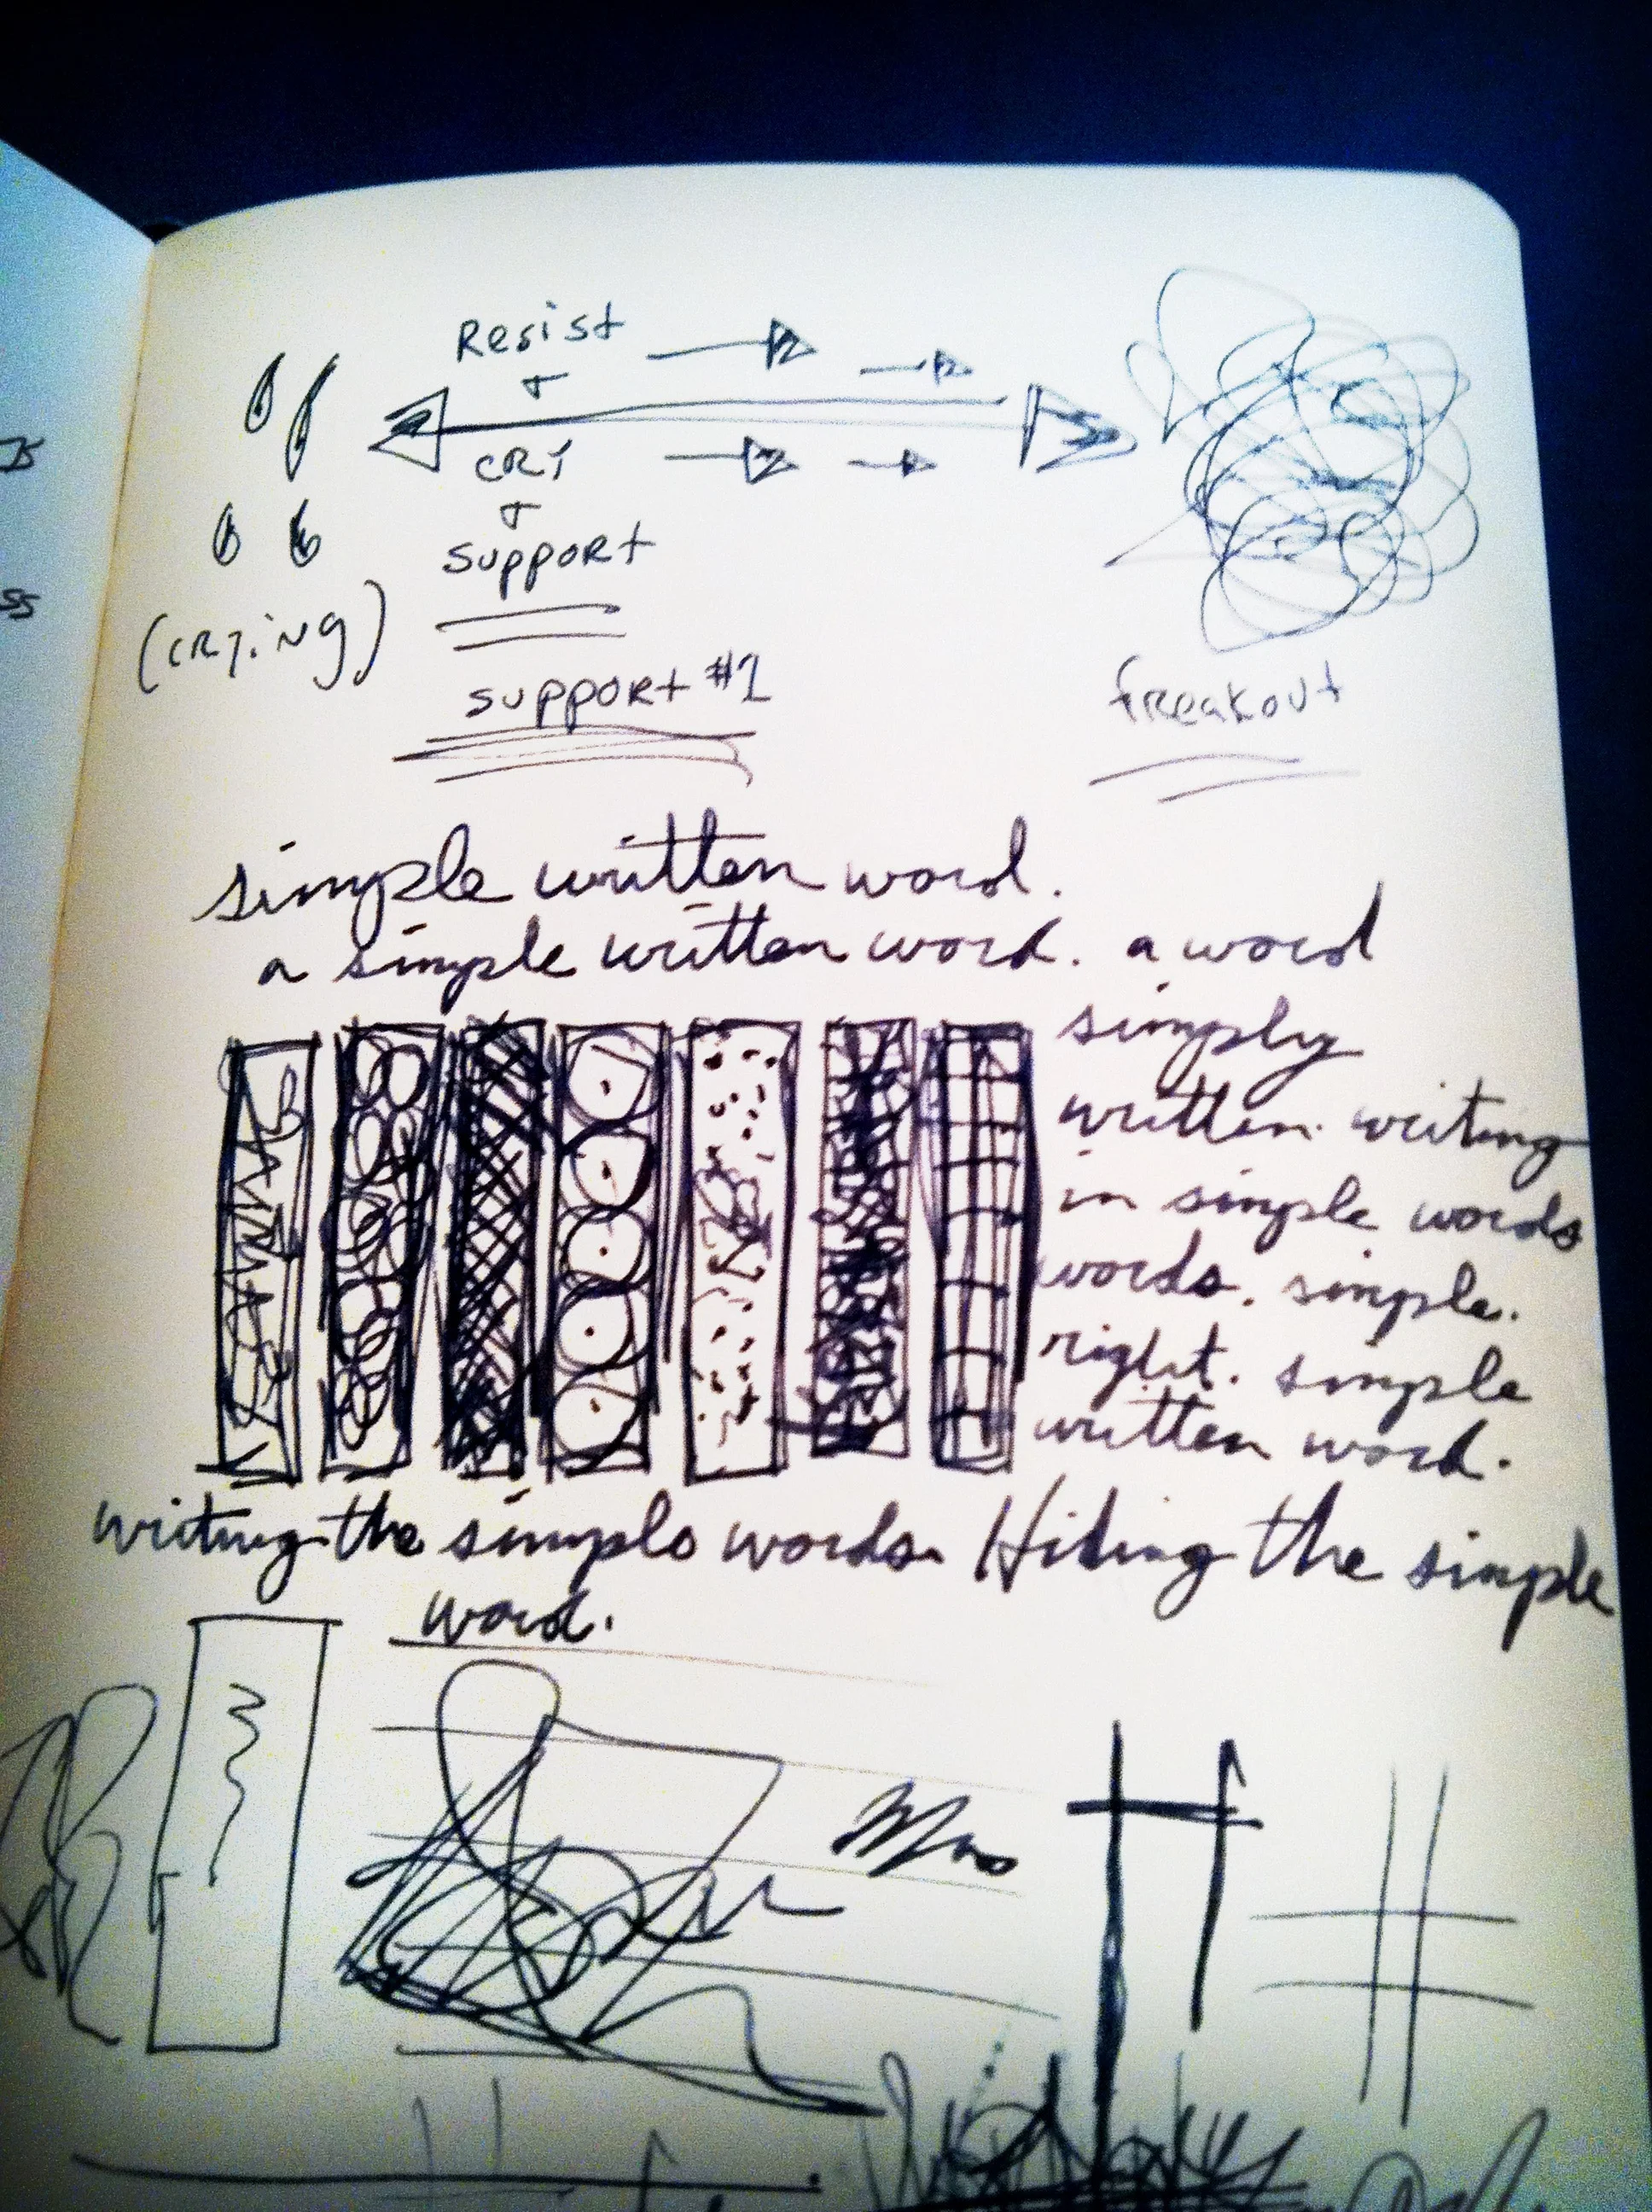 Resist
CRY
support
(CRYiNg)
support #1
freakout
simple written word.
a simple written word. a word
simply
written. writing
in simple words
words. simple.
right. simple
written word.
writing the simple words. Hiding the simple
word.